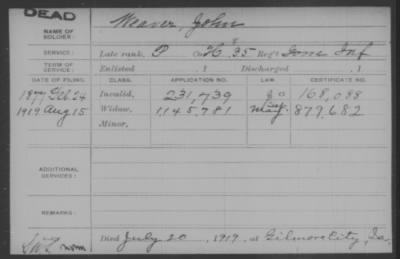 DEAD
NAME OF SOLDIER: Weaver, John
SERVICE: Late rank, P Co. 35 Reg't Iowa Inf
TERM OF SERVICE: Enlisted , 1 Discharged , 1
DATE OF FILING. CLASS. APPLICATION NO. LAW. CERTIFICATE NO.
1877 Feb 24 Invalid, 231,739 168,088
1919 Aug 15 Widow, 1,145,781 879,682
Minor,
ADDITIONAL SERVICES:
REMARKS:
Died July 20, 1919, at Gilmore City, Ia.